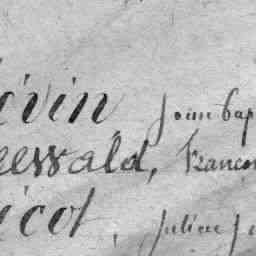 évin jean bap
eewald, Françoi
icot, julien j